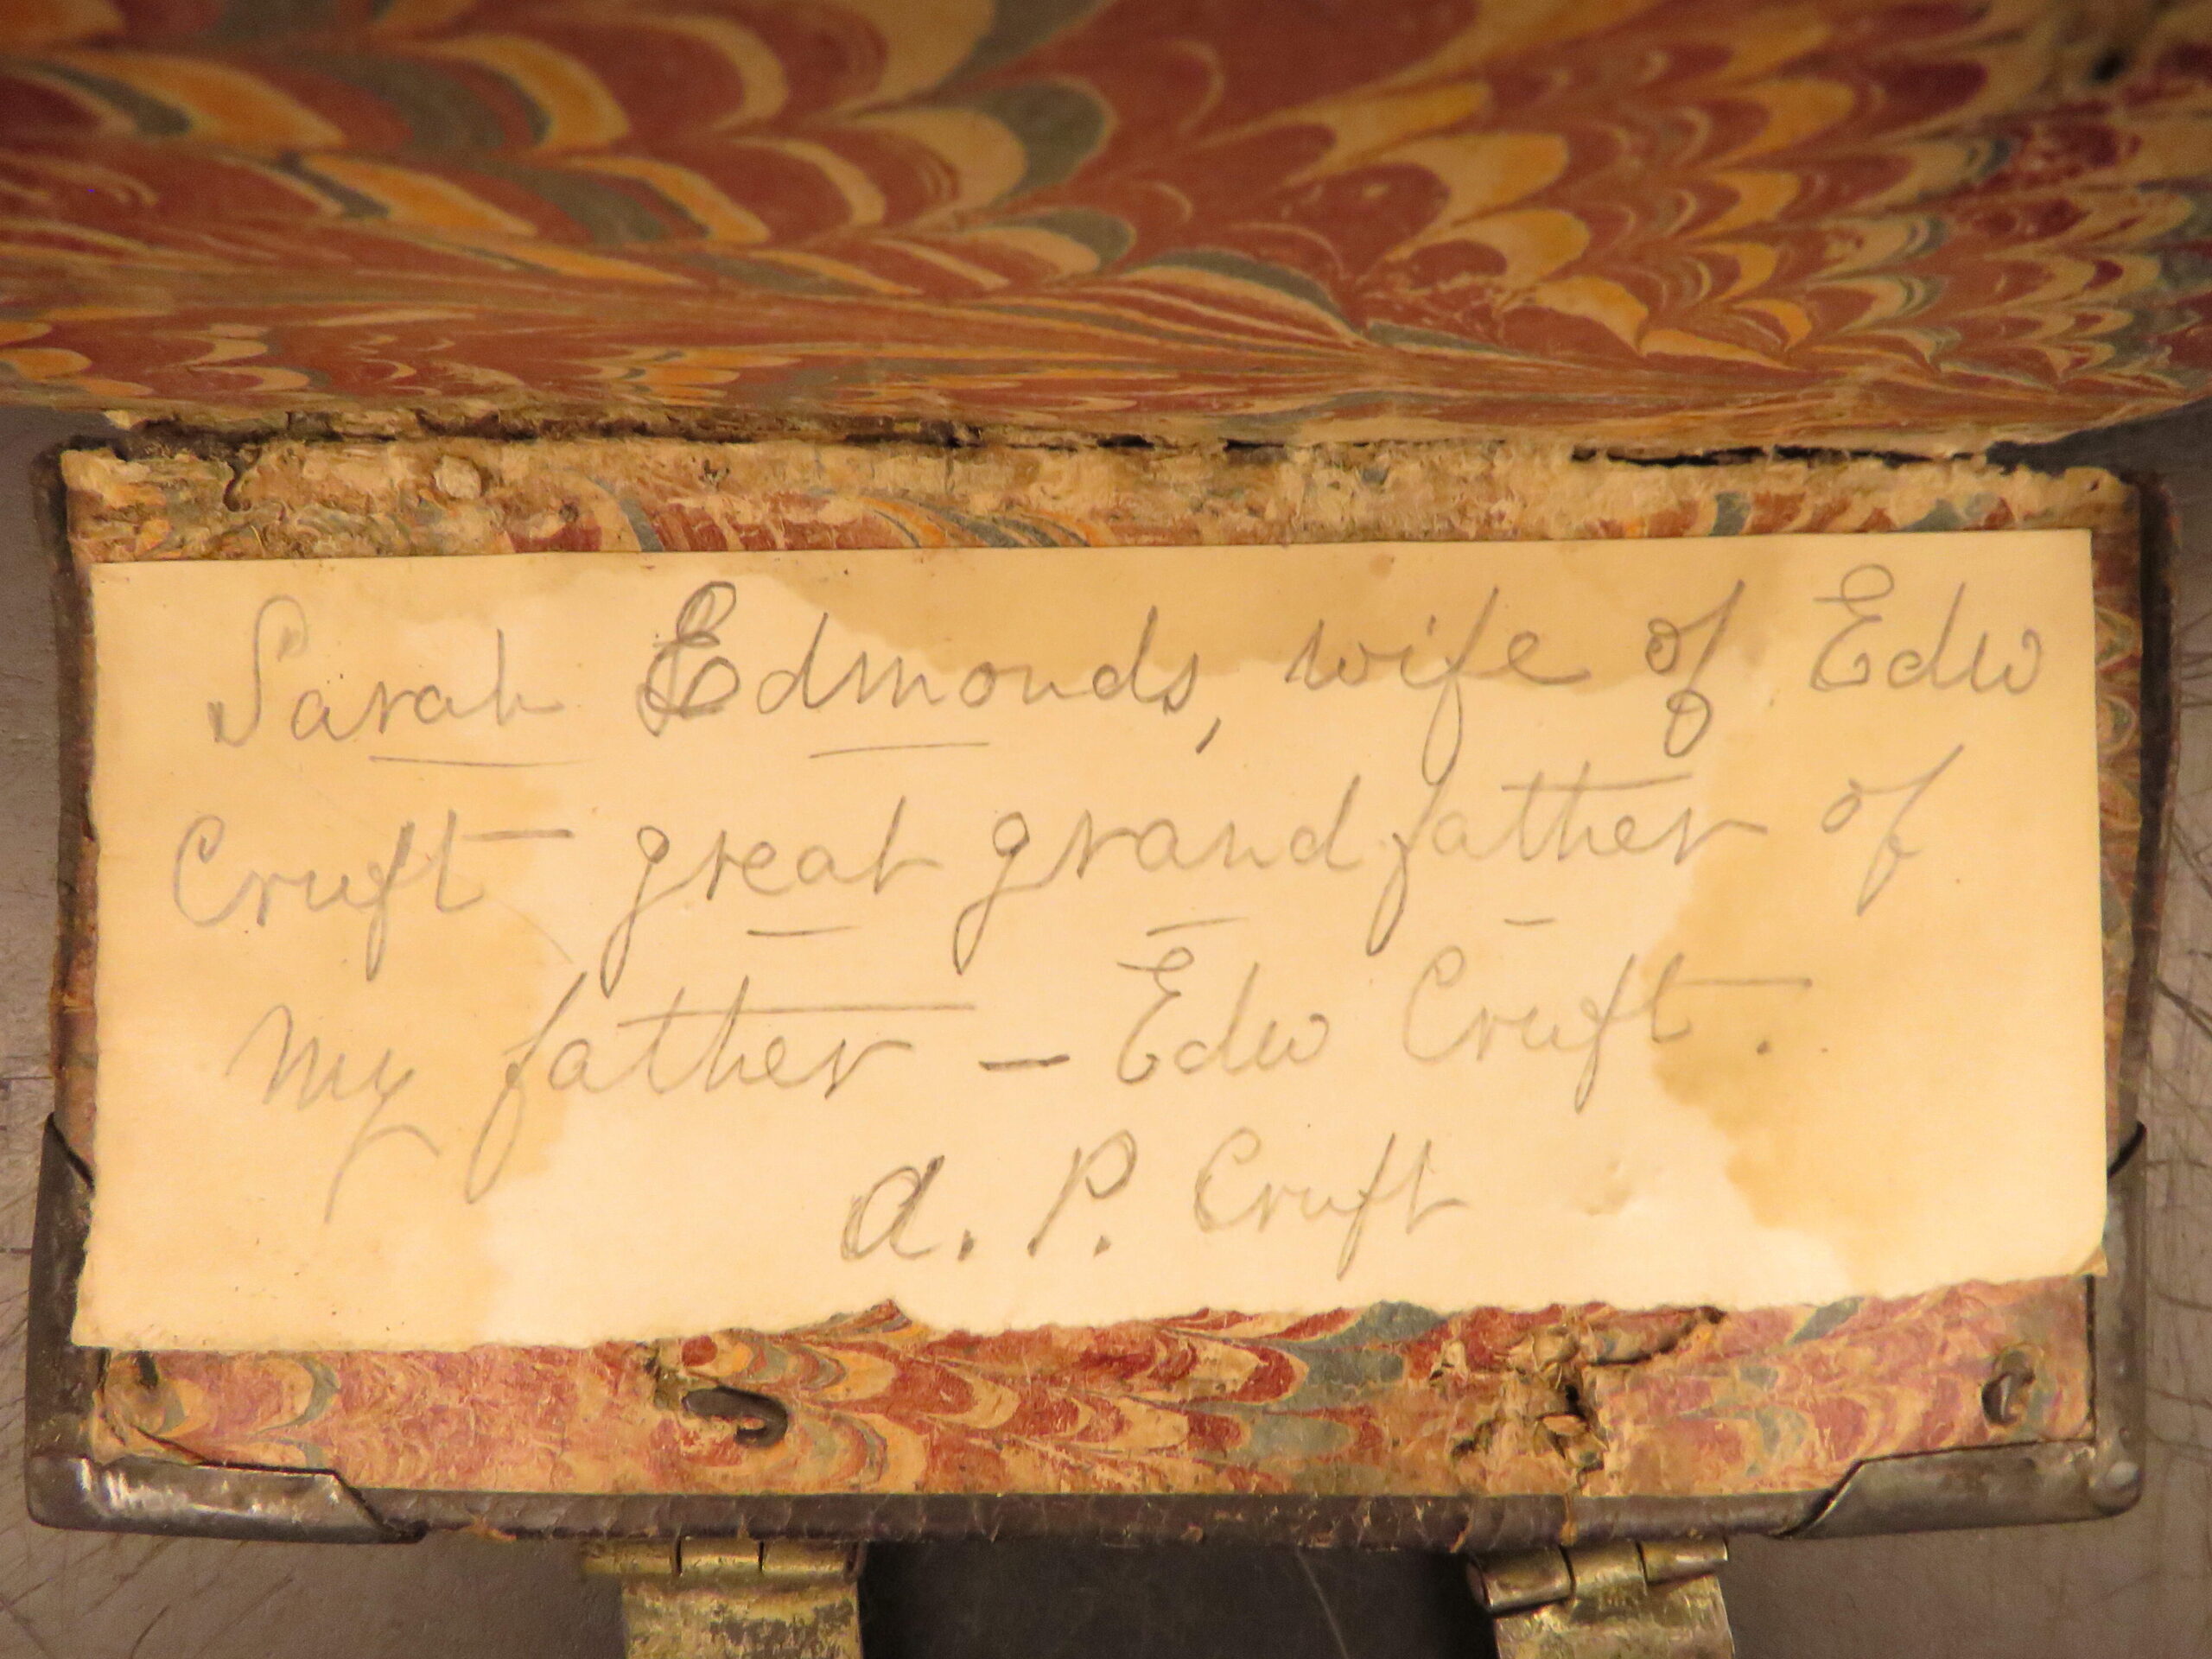 Sarah Edmonds, wife of Edw
Cruft great grandfather of
my father – Edw Cruft.
A. P. Cruft